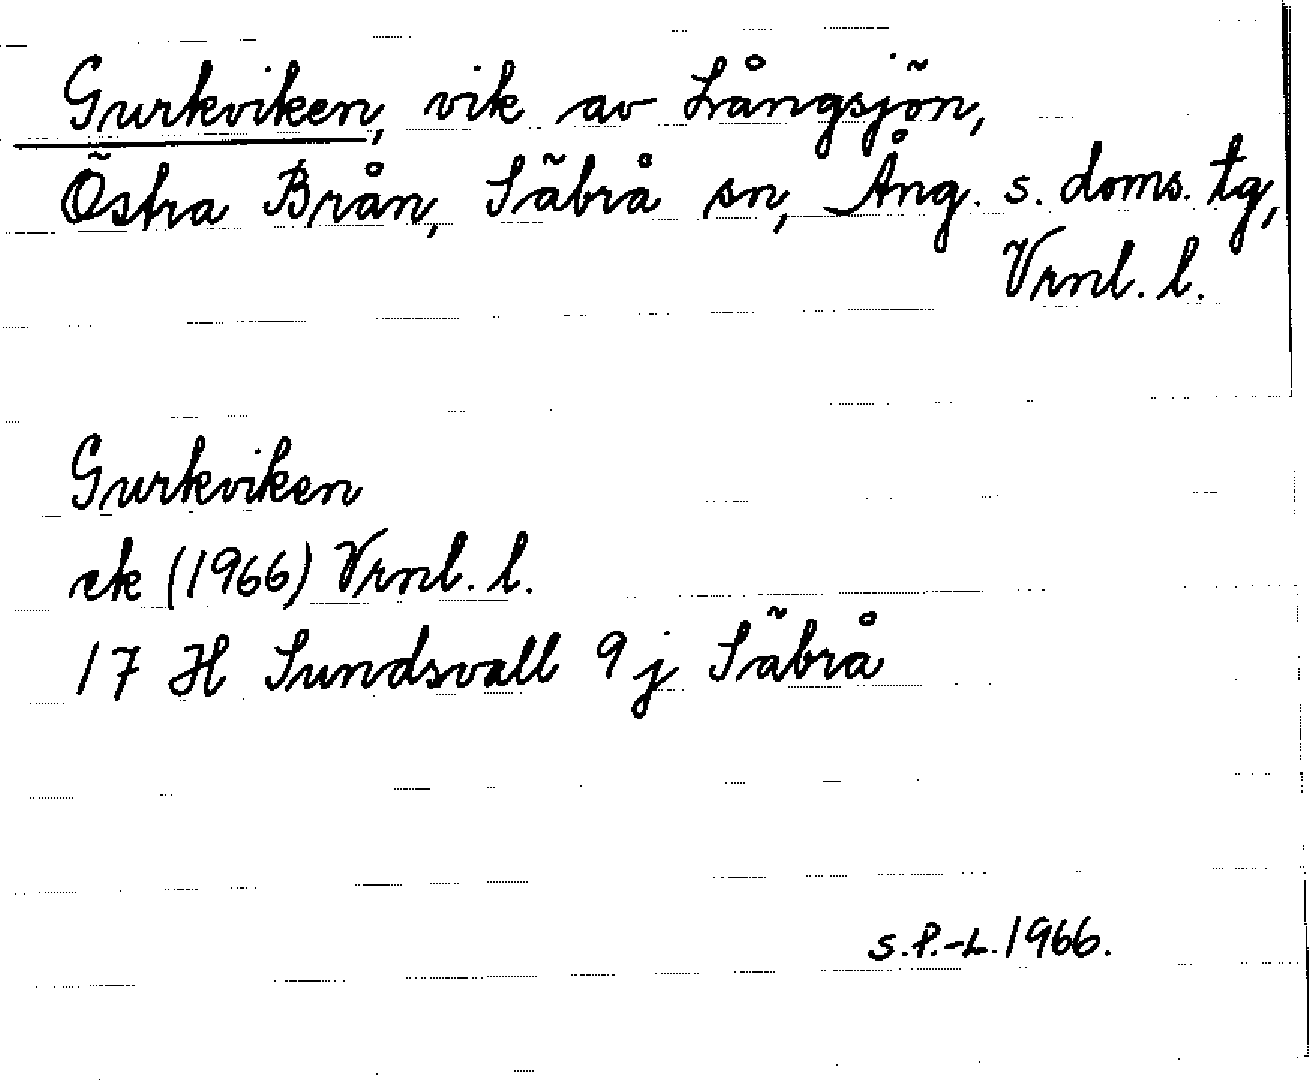 Gurkviken, vik av Långsjön,
Östra Brån, Säbrå sn, Ång. s. doms. tg,
Vrnl. l.
Gurkviken
ek (1966) Vrnl. l.
17 H Sundsvall 9 j Säbrå
S.P.-L. 1966.